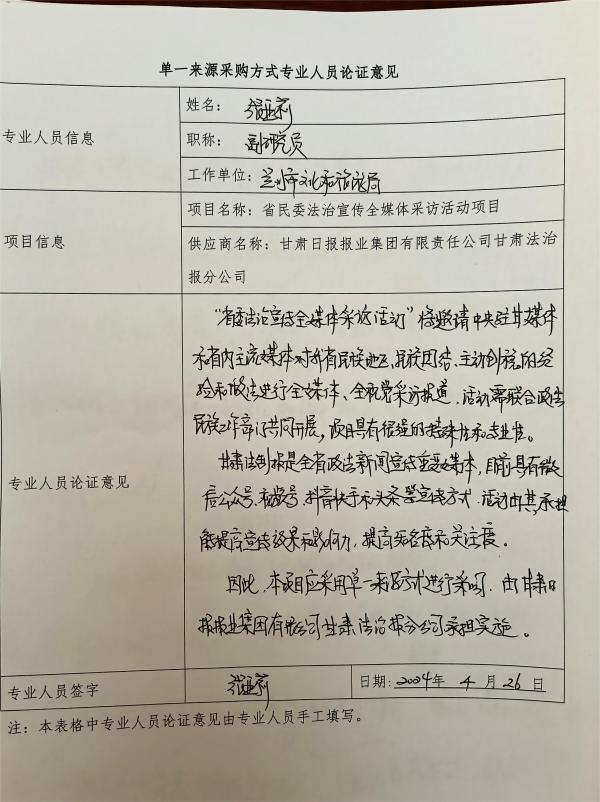 单一来源采购方式专业人员论证意见
专业人员信息
姓名：张亚莉
职称：副研究员
工作单位：兰州市文化和旅游局
项目信息
项目名称：省民委法治宣传全媒体采访活动项目
供应商名称：甘肃日报报业集团有限责任公司甘肃法治
报分公司
专业人员论证意见
“省委法治宣传全媒体采访活动”将邀请中央驻甘媒体
和省内主流媒体对我省民族地区、民族团结、主动创稳的经
验和做法进行全媒体、全视觉采访报道，活动需联合政法
民族工作部门共同开展，项目具有很强的特殊性和专业性。
甘肃法制报是全省政法新闻宣传重要媒体，目前具有微
信公众号、视频号、抖音快手和头条等宣传方式，活动由其承担
能提高宣传效果和影响力，提高知名度和关注度。
因此，本项目应采用单一来源方式进行采购，由甘肃日
报报业集团有限公司甘肃法治报分公司承担实施。
专业人员签字
张亚莉
日期：2024年 4 月 26 日
注：本表格中专业人员论证意见由专业人员手工填写。